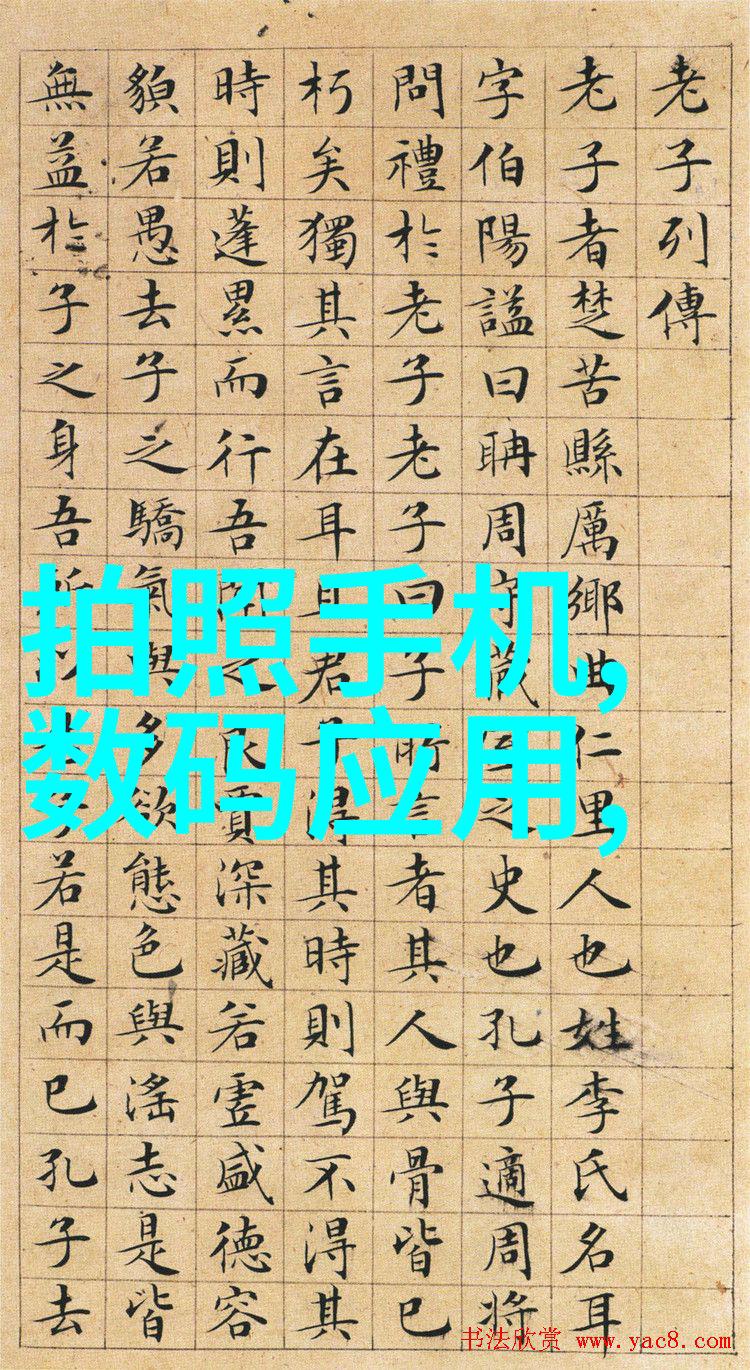 老子列傳
老子者楚苦縣厲鄉曲仁里人也姓李氏名耳
字伯陽謚曰聃周守藏室之史也孔子適周將
問禮於老子老子曰子所言者其人與骨皆已
朽矣獨其言在耳且君子得其時則駕不得其
時則蓬累而行吾聞之良賈深藏若虛盛德容
貌若愚去子之驕氣與多欲態色與淫志是皆
無益於子之身吾所以告子若是而已孔子去
拍照手机,
数码应用,
书法欣赏 www.yac8.com